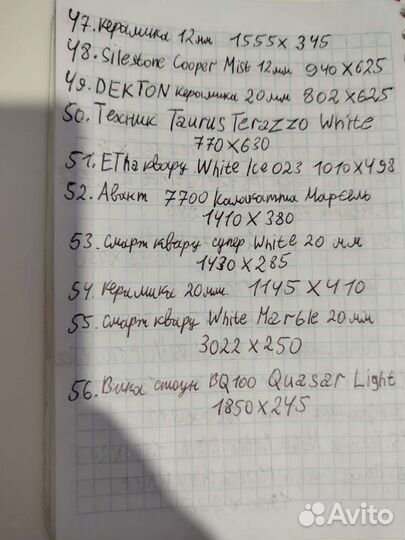 47. керамика 12мм 1555х 345
48. Silestone Cooper Mist 12мм 940х625
49. DEKTON керамика 20мм 802х625
50. Техник Taurus Terazzo White
770х630
51. ETHa кварц White Ice 023 1010х498
52. Авант 7700 Калакатта Марсель
1410х380
53. смарт кварц супер White 20 мм
1430х285
54. керамика 20мм. 1145х410
55. смарт кварц White Marble 20мм
3022х250
56. Вика стоун BQ100 Quasar Light
1850х245
Avito